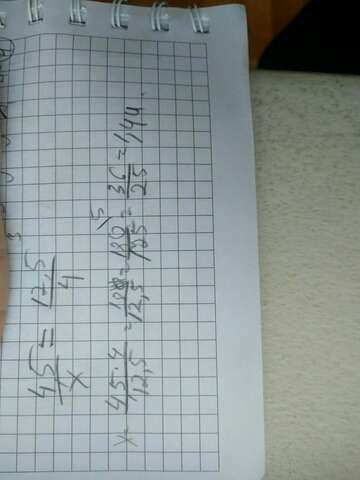 4,5/x = 12,5/4
x = 4,5·4/12,5 = 18/12,5 = 180/125 \5 = 36/25 = 1,44.